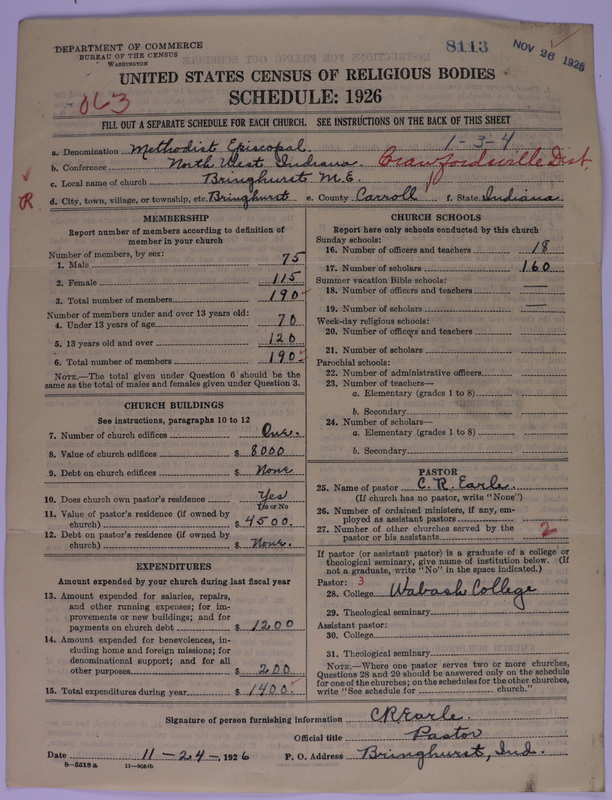 DEPARTMENT OF COMMERCE
BUREAU OF THE CENSUS
WASHINGTON
8113
NOV 26 1926
UNITED STATES CENSUS OF RELIGIOUS BODIES
SCHEDULE: 1926
063
FILL OUT A SEPARATE SCHEDULE FOR EACH CHURCH. SEE INSTRUCTIONS ON THE BACK OF THIS SHEET
1-3-4
a. Denomination Methodist Episcopal
b. Conference North West Indiana Crawfordsville Dist.
c. Local name of church Bringhurst M.E.
R
d. City, town, village, or township, etc. Bringhurst e. County Carroll f. State Indiana
MEMBERSHIP
Report number of members according to definition of
member in your church
Number of members, by sex:
1. Male 75
2. Female 115
3. Total number of members 190
Number of members under and over 13 years old:
4. Under 13 years of age 70
5. 13 years old and over 120
6. Total number of members 190
NOTE.—The total given under Question 6 should be the
same as the total of males and females given under Question 3.
CHURCH BUILDINGS
See instructions, paragraphs 10 to 12
7. Number of church edifices One.
8. Value of church edifices $ 8000
9. Debt on church edifices $ None
10. Does church own pastor's residence Yes
Yes or No
11. Value of pastor's residence (if owned by
church) $ 4500.
12. Debt on pastor's residence (if owned by
church) $ None.
EXPENDITURES
Amount expended by your church during last fiscal year
13. Amount expended for salaries, repairs,
and other running expenses; for im-
provements or new buildings; and for
payments on church debt $ 1200
14. Amount expended for benevolences, in-
cluding home and foreign missions; for
denominational support; and for all
other purposes $ 200
15. Total expenditures during year $ 1400.
CHURCH SCHOOLS
Report here only schools conducted by this church
Sunday schools:
16. Number of officers and teachers 18
17. Number of scholars 160
Summer vacation Bible schools:
18. Number of officers and teachers —
19. Number of scholars —
Week-day religious schools:
20. Number of officers and teachers
21. Number of scholars
Parochial schools:
22. Number of administrative officers
23. Number of teachers—
a. Elementary (grades 1 to 8)
b. Secondary
24. Number of scholars—
a. Elementary (grades 1 to 8)
b. Secondary
PASTOR
25. Name of pastor C. R. Earle.
(If church has no pastor, write "None")
26. Number of ordained ministers, if any, em-
ployed as assistant pastors
27. Number of other churches served by the
pastor or his assistants 2
If pastor (or assistant pastor) is a graduate of a college or
theological seminary, give name of institution below. (If
not a graduate, write "No" in the space indicated.)
Pastor: 3
28. College Wabash College
29. Theological seminary
Assistant pastor:
30. College
31. Theological seminary
NOTE.—Where one pastor serves two or more churches,
Questions 28 and 29 should be answered only on the schedule
for one of the churches; on the schedules for the other churches,
write "See schedule for church."
Signature of person furnishing information CR Earle.
Official title Pastor
Date 11-24-, 1926 P. O. Address Bringhurst, Ind.
8-5518a